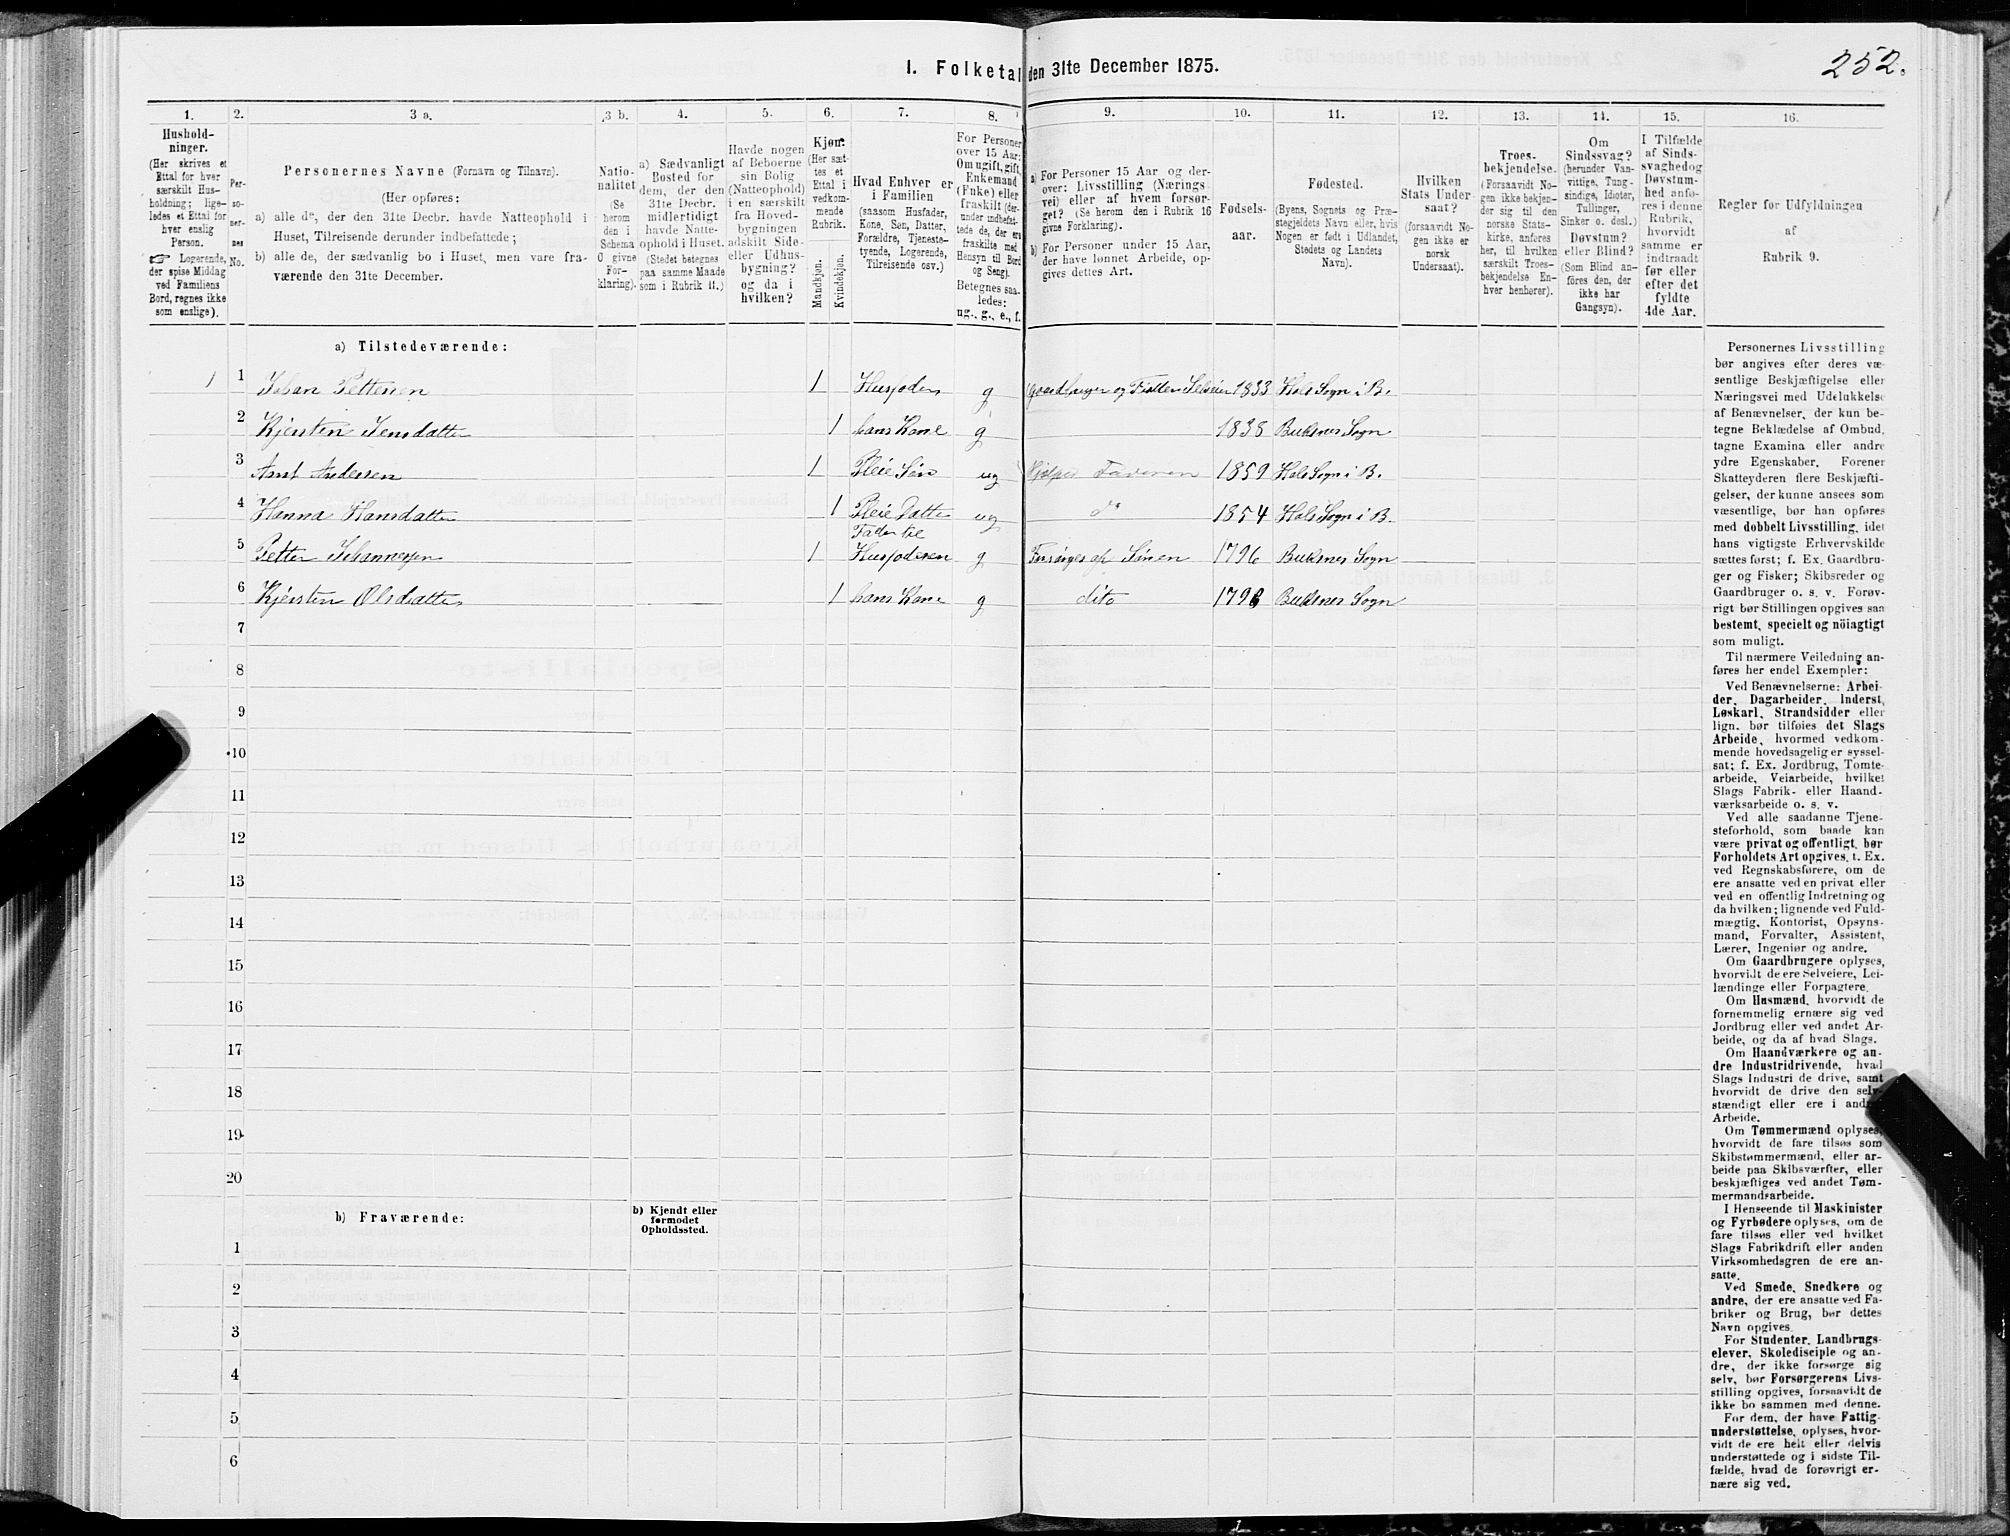 252.
I. Folketal den 31te December 1875.
1.
Hushold-
ninger.
(Her skrives et
Ettal for hver
særskilt Hus-
holdning; lige-
ledes et Ettal for
hver enslig
Person.
☞ Logerende,
der spise Middag
ved Familiens
Bord, regnes ikke
som enslige).
2.
Per-
so-
ner-
nes
No.
3 a.
Personernes Navne (Fornavn og Tilnavn).
(Her opføres:
a) alle de, der den 31te Decbr. havde Natteophold i
Huset, Tilreisende derunder indbefattede;
b) alle de, der sædvanlig bo i Huset, men vare fra-
værende den 31te December.
3 b.
Natio-
nalitet
(Se
herom
den i
Schema
O givne
For-
klaring).
4.
a) Sædvanligt
Bosted for
dem, der den
31te Decbr.
midlertidigt
havde Natte-
ophold i Huset.
(Stedet betegnes
paa samme Maade
som i Rubrik 11.)
5.
Havde nogen
af Beboerne
sin Bolig
(Natteophold)
i en særskilt
fra Hoved-
bygningen
adskilt Side-
eller Udhus-
bygning?
og da i
hvilken?
6.
Kjøn.
(Her sæt-
tes et
Ettal i
vedkom-
mende
Rubrik.
Mandkjøn.
Kvindekjøn.
7.
Hvad Enhver er
i Familien
(saasom Husfader,
Kone, Søn, Datter,
Forældre, Tjeneste-
tyende, Logerende,
Tilreisende osv.)
8.
For Personer
over 15 Aar:
Om ugift, gift,
Enkemand
(Enke) eller
fraskilt (der-
under indbefat-
tede de, der ere
fraskilte med
Hensyn til Bord
og Seng).
Betegnes saa-
ledes:
ug., g., e., f.
9.
a) For Personer 15 Aar og der-
over: Livsstilling (Nærings-
vei) eller af hvem forsør-
get? (Se herom den i Rubrik 16
givne Forklaring).
b) For Personer under 15 Aar,
der have lønnet Arbeide, op-
gives dettes Art.
10.
Fødsels-
aar.
11.
Fødested.
(Byens, Sognets og Præ-
stegjeldets Navn eller, hvis
Nogen er født i Udlandet,
Stedets og Landets
Navn).
12.
Hvilken
Stats Under-
saat?
(forsaavidt No-
gen ikke er
norsk
Undersaat).
13.
Troes-
bekjendelse.
(Forsaavidt No-
gen ikke bekjen-
der sig til den
norske Stats-
kirke, anføres
her, til hvilken
særskilt Troes-
bekjendelse En-
hver henhører).
14.
Om
Sindssvag?
(herunder Van-
vittige, Tung-
sindige, Idioter,
Tullinger,
Sinker o. desl.)
Døvstum?
eller Blind?
(Som Blind an-
føres den, der
ikke har
Gangsyn).
15.
I Tilfælde
af Sinds-
svaghed og
Døvstum-
hed anfø-
res i denne
Rubrik,
hvorvidt
samme er
indtraadt
før eller
efter det
fyldte
4de Aar.
16.
Regler for Udfyldningen
af
Rubrik 9.
a) Tilstedeværende:
1 1 Johan Pettersen 1 Husfader g Gaardbruger og Fisker Selveier 1833 Hals Sogn i B.
2 Kjersten Jensdatter 1 hans Kone g 1838 Buksnes Sogn
3 Arnt Andersen 1 Pleie Søn ug Hjelper Faderen 1859 Hals Sogn i B.
4 Hanna Hansdatter 1 Pleie Datter ug do 1854 Hals Sogn i B.
Fader til
5 Petter Johannessen 1 Husfaderen g Forsørges af Sønen 1796 Buksnes Sogn
6 Kjersten Olsdatter 1 hans Kone g dito 1796 Buksnes Sogn
7
8
9
10
11
12
13
14
15
16
17
18
19
20
b) Fraværende:
b) Kjendt eller
formodet
Opholdssted.
1
2
3
4
5
6
Personernes Livsstilling
bør angives efter deres væ-
sentlige Beskjæftigelse eller
Næringsvei med Udelukkelse
af Benævnelser, der kun be-
tegne Beklædelse af Ombud,
tagne Examina eller andre
ydre Egenskaber. Forener
Skatteyderen flere Beskjæfti-
gelser, der kunne ansees som
væsentlige, bør han opføres
med dobbelt Livsstilling, idet
hans vigtigste Erhvervskilde
sættes først; f. Ex. Gaardbru-
ger og Fisker; Skibsreder og
Gaardbruger o. s. v. Forøv-
rigt bør Stillingen opgives saa
bestemt, specielt og nöiagtigt
som muligt.
Til nærmere Veiledning an-
føres her endel Exempler:
Ved Benævnelserne: Arbei-
der, Dagarbeider, Inderst,
Løskarl, Strandsidder eller
lign. bør tilføies det Slags
Arbeide, hvormed vedkom-
mende hovedsagelig er syssel-
sat; f. Ex. Jordbrug, Tomte-
arbeide, Veiarbeide, hvilket
Slags Fabrik- eller Haand-
værksarbeide o. s. v.
Ved alle saadanne Tjene-
steforhold, som baade kan
være privat og offentligt, bør
Forholdets Art opgives, t. Ex.
ved Regnskabsførere, om de
ere ansatte ved en privat eller
ved en offentlig Indretning og
da hvilken; lignende ved Fuld-
mægtig, Kontorist, Opsyns-
mand, Forvalter, Assistent,
Lærer, Ingeniør og andre.
Om Gaardbrugere oplyses,
hvorvidt de ere Selveiere, Lei-
lændinge eller Forpagtere.
Om Husmænd, hvorvidt de
fornemmelig ernære sig ved
Jordbrug eller ved andet Ar-
beide, og da af hvad Slags.
Om Haandværkere og an-
dre Industridrivende, hvad
Slags Industri de drive, samt
hvorvidt de drive den selv-
stændigt eller ere i andres
Arbeide.
Om Tømmermænd oplyses,
hvorvidt de fare tilsøs som
Skibstømmermænd, eller ar-
beide paa Skibsværfter, eller
beskjæftiges ved andet Tøm-
mermandsarbeide.
I Henseende til Maskinister
og Fyrbødere oplyses, om de
fare tilsøs eller ved hvilket
Slags Fabrikdrift eller anden
Virksomhedsgren de ere an-
satte.
Ved Smede, Snedkere og
andre, der ere ansatte ved Fa-
briker og Brug, bør dettes
Navn opgives.
For Studenter, Landbrugs-
elever, Skoledisciple og an-
dre, der ikke forsørge sig
selv, bør Forsørgerens Livs-
stilling opgives, forsaavidt de
ikke bo sammen med denne.
For dem, der have Fattig-
understøttelse, oplyses, hvor-
vidt de ere helt eller delvis
understøttede og i sidste Til-
fælde, hvad de forøvrigt er-
nære sig ved.